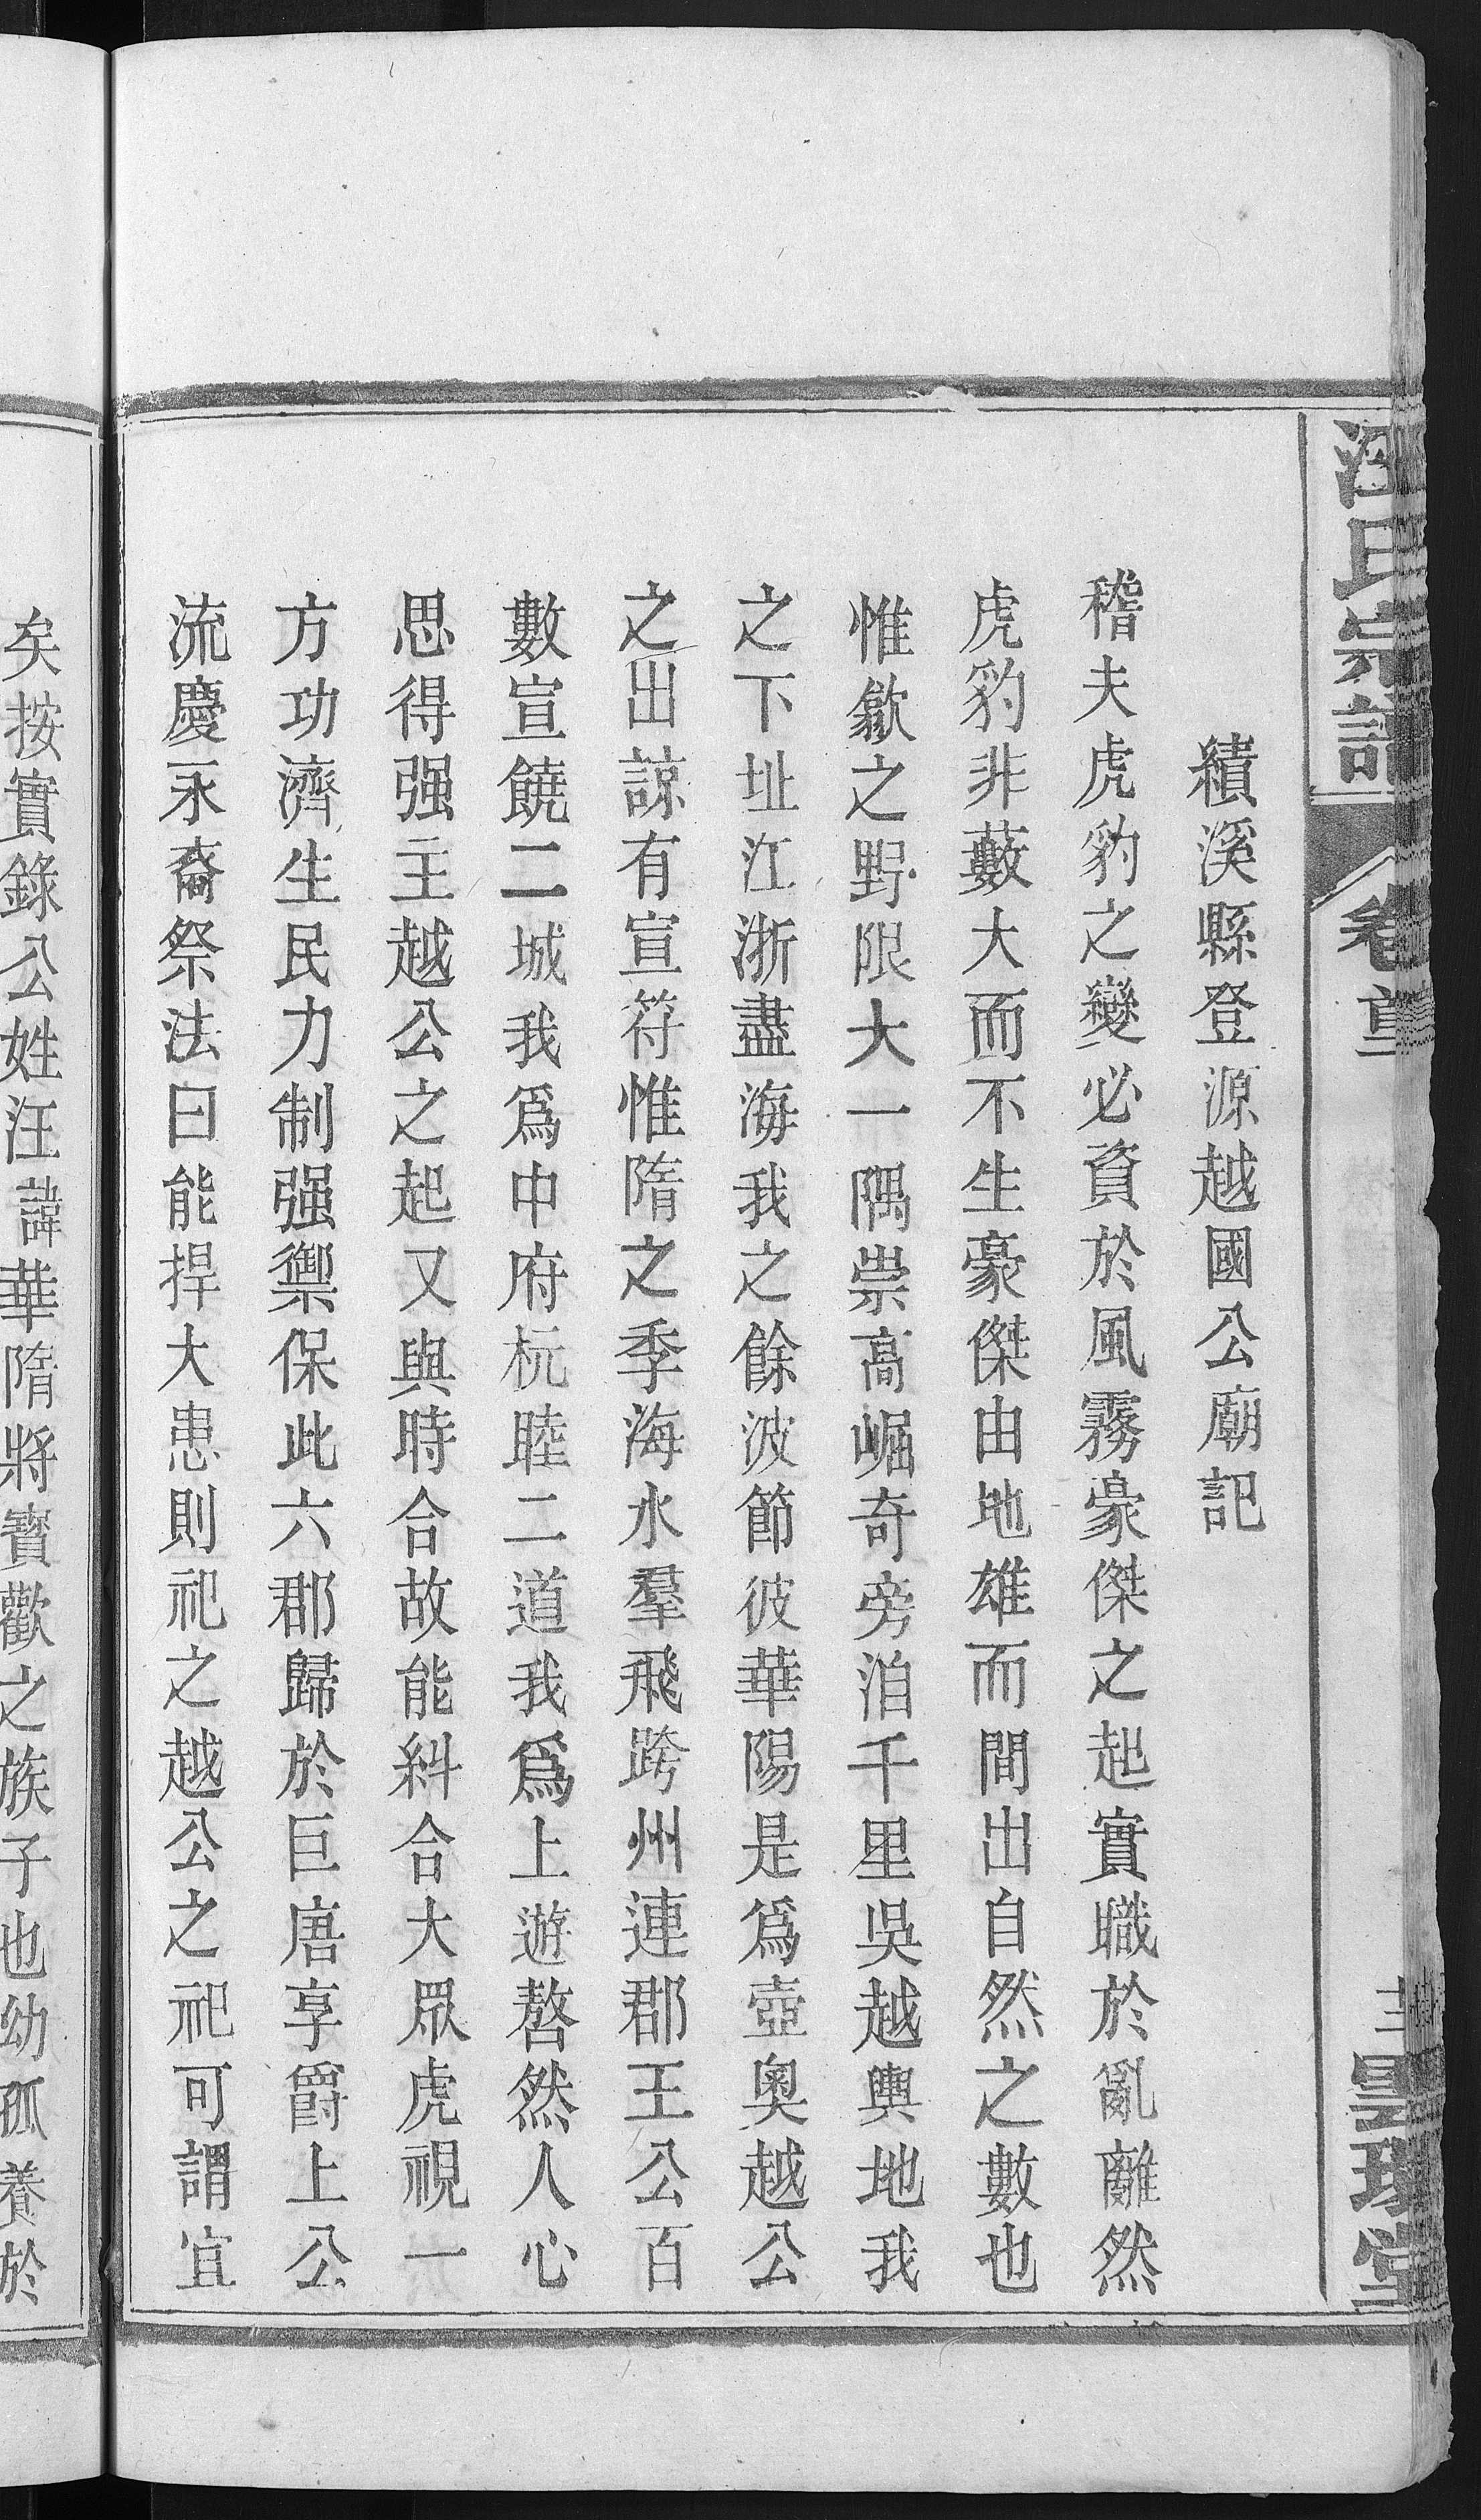 汪氏宗譜
卷首
雲環堂
績溪縣登源越國公廟記
稽夫虎豹之變必資於風霧豪傑之起實職於亂離然
虎豹非藪大而不生豪傑由地雄而間出自然之數也
惟歙之野限大一隅崇高崛奇旁洎千里吳越輿地我
之下址江浙盡海我之餘波節彼華陽是爲壺奧越公
之出諒有宣符惟隋之季海水羣飛跨州連郡王公百
數宣饒二城我爲中府杬睦二道我爲上遊嶅然人心
思得强主越公之起又與時合故能糾合大眾虎視一
方功濟生民力制强禦保此六郡歸於巨唐享爵上公
流慶永裔祭法曰能捍大患則祀之越公之祀可謂宜
矣按實錄公姓汪諱華隋將寶歡之族子也幼孤養於